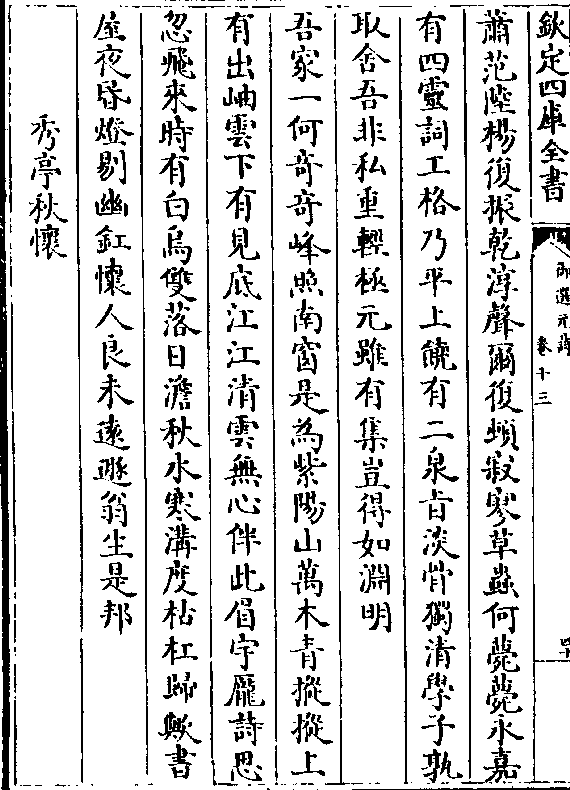 欽定四庫全書
御選元詩
卷十三
蕭范陸楊復振乾淳聲爾復頓寂寥草蟲何薨薨永嘉
有四靈詞工格乃平上饒有二泉旨淡骨獨清學子孰
取舍吾非私重輕極元雖有集豈得如淵明
吾家一何奇奇峰照南窗是為紫陽山萬木青摐摐上
有出岫雲下有見底江江清雲無心伴此眉宇龐詩思
忽飛來時有白鳥雙落日澹秋水寒溝度枯杠歸歟書
屋夜昏燈剔幽釭懷人良未遠遯翁生是邦
秀亭秋懷